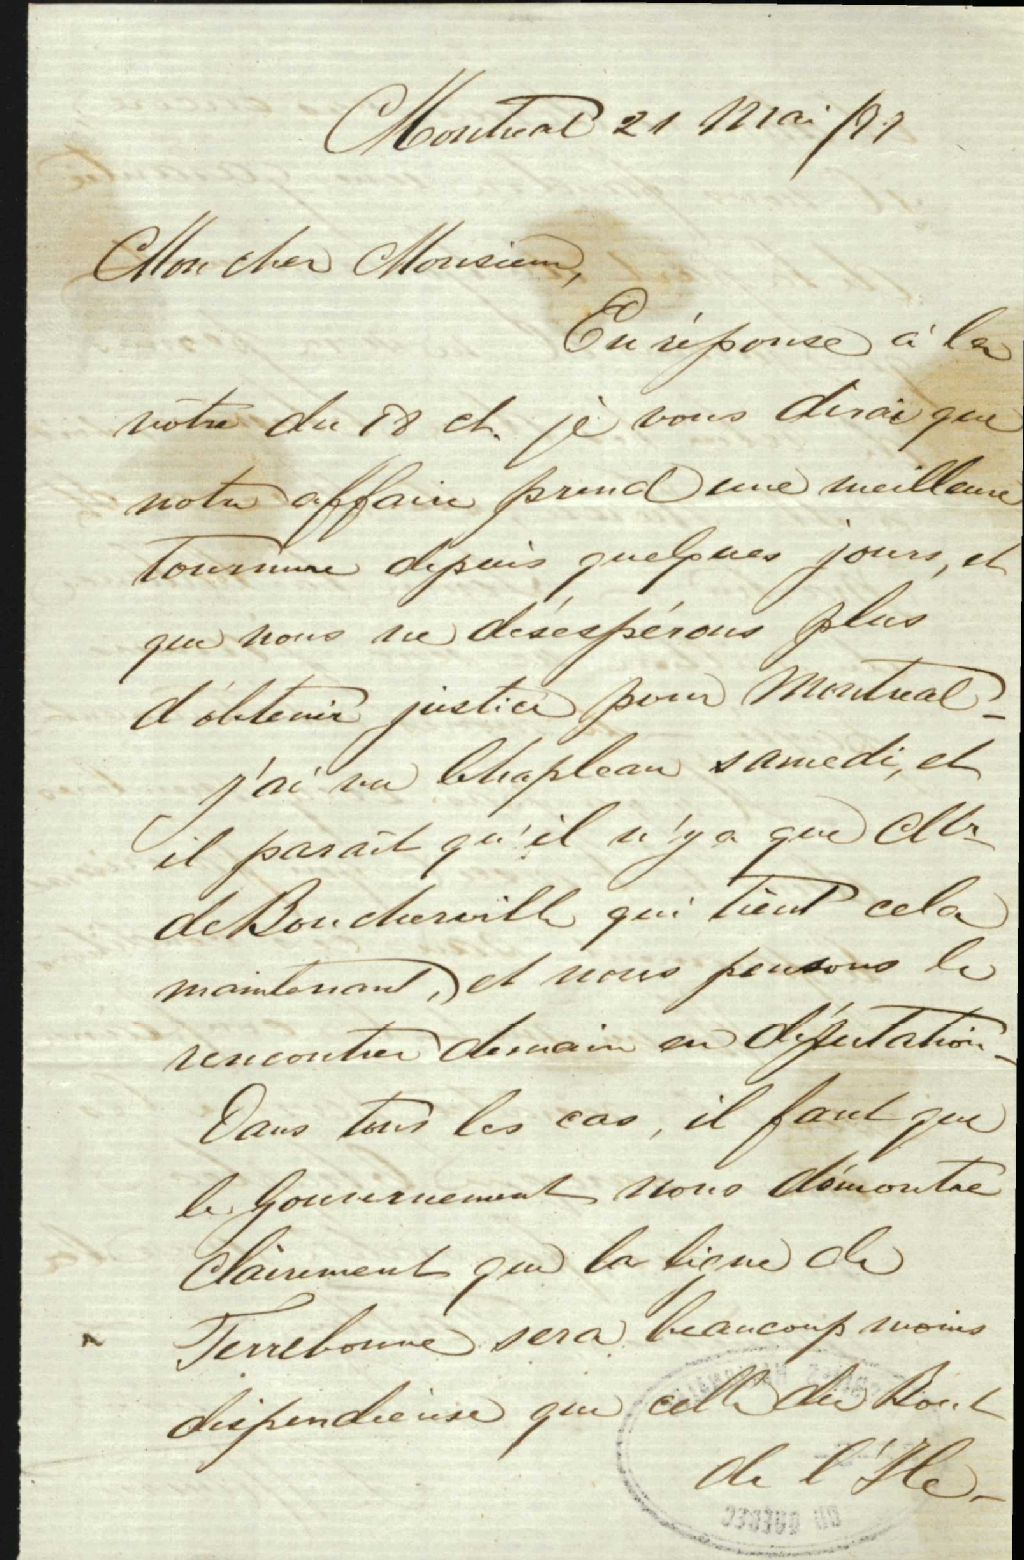 Montreal 21 Mai /77
Mon cher Monsieur,
En réponse à la
vôtre du 18 ct. je vous dirai que
notre affaire prend une meilleure
tournure depuis quelques jours, et
que nous ne désespérons plus
d'obtenir justice pour Montreal_
j'ai vu Chapleau samedi, et
il parait qu'il n'y a que Mr
de Boucherville qui tient cela
maintenant, et nous pensons le
rencontrer demain en députation_
Dans tous les cas, il faut que
le Gouvernement nous démontre
clairement que la ligne de
Terrebonne sera beaucoup moins
dispendieuse que celle du Bout
de l'Ile_
DU QUÉBEC